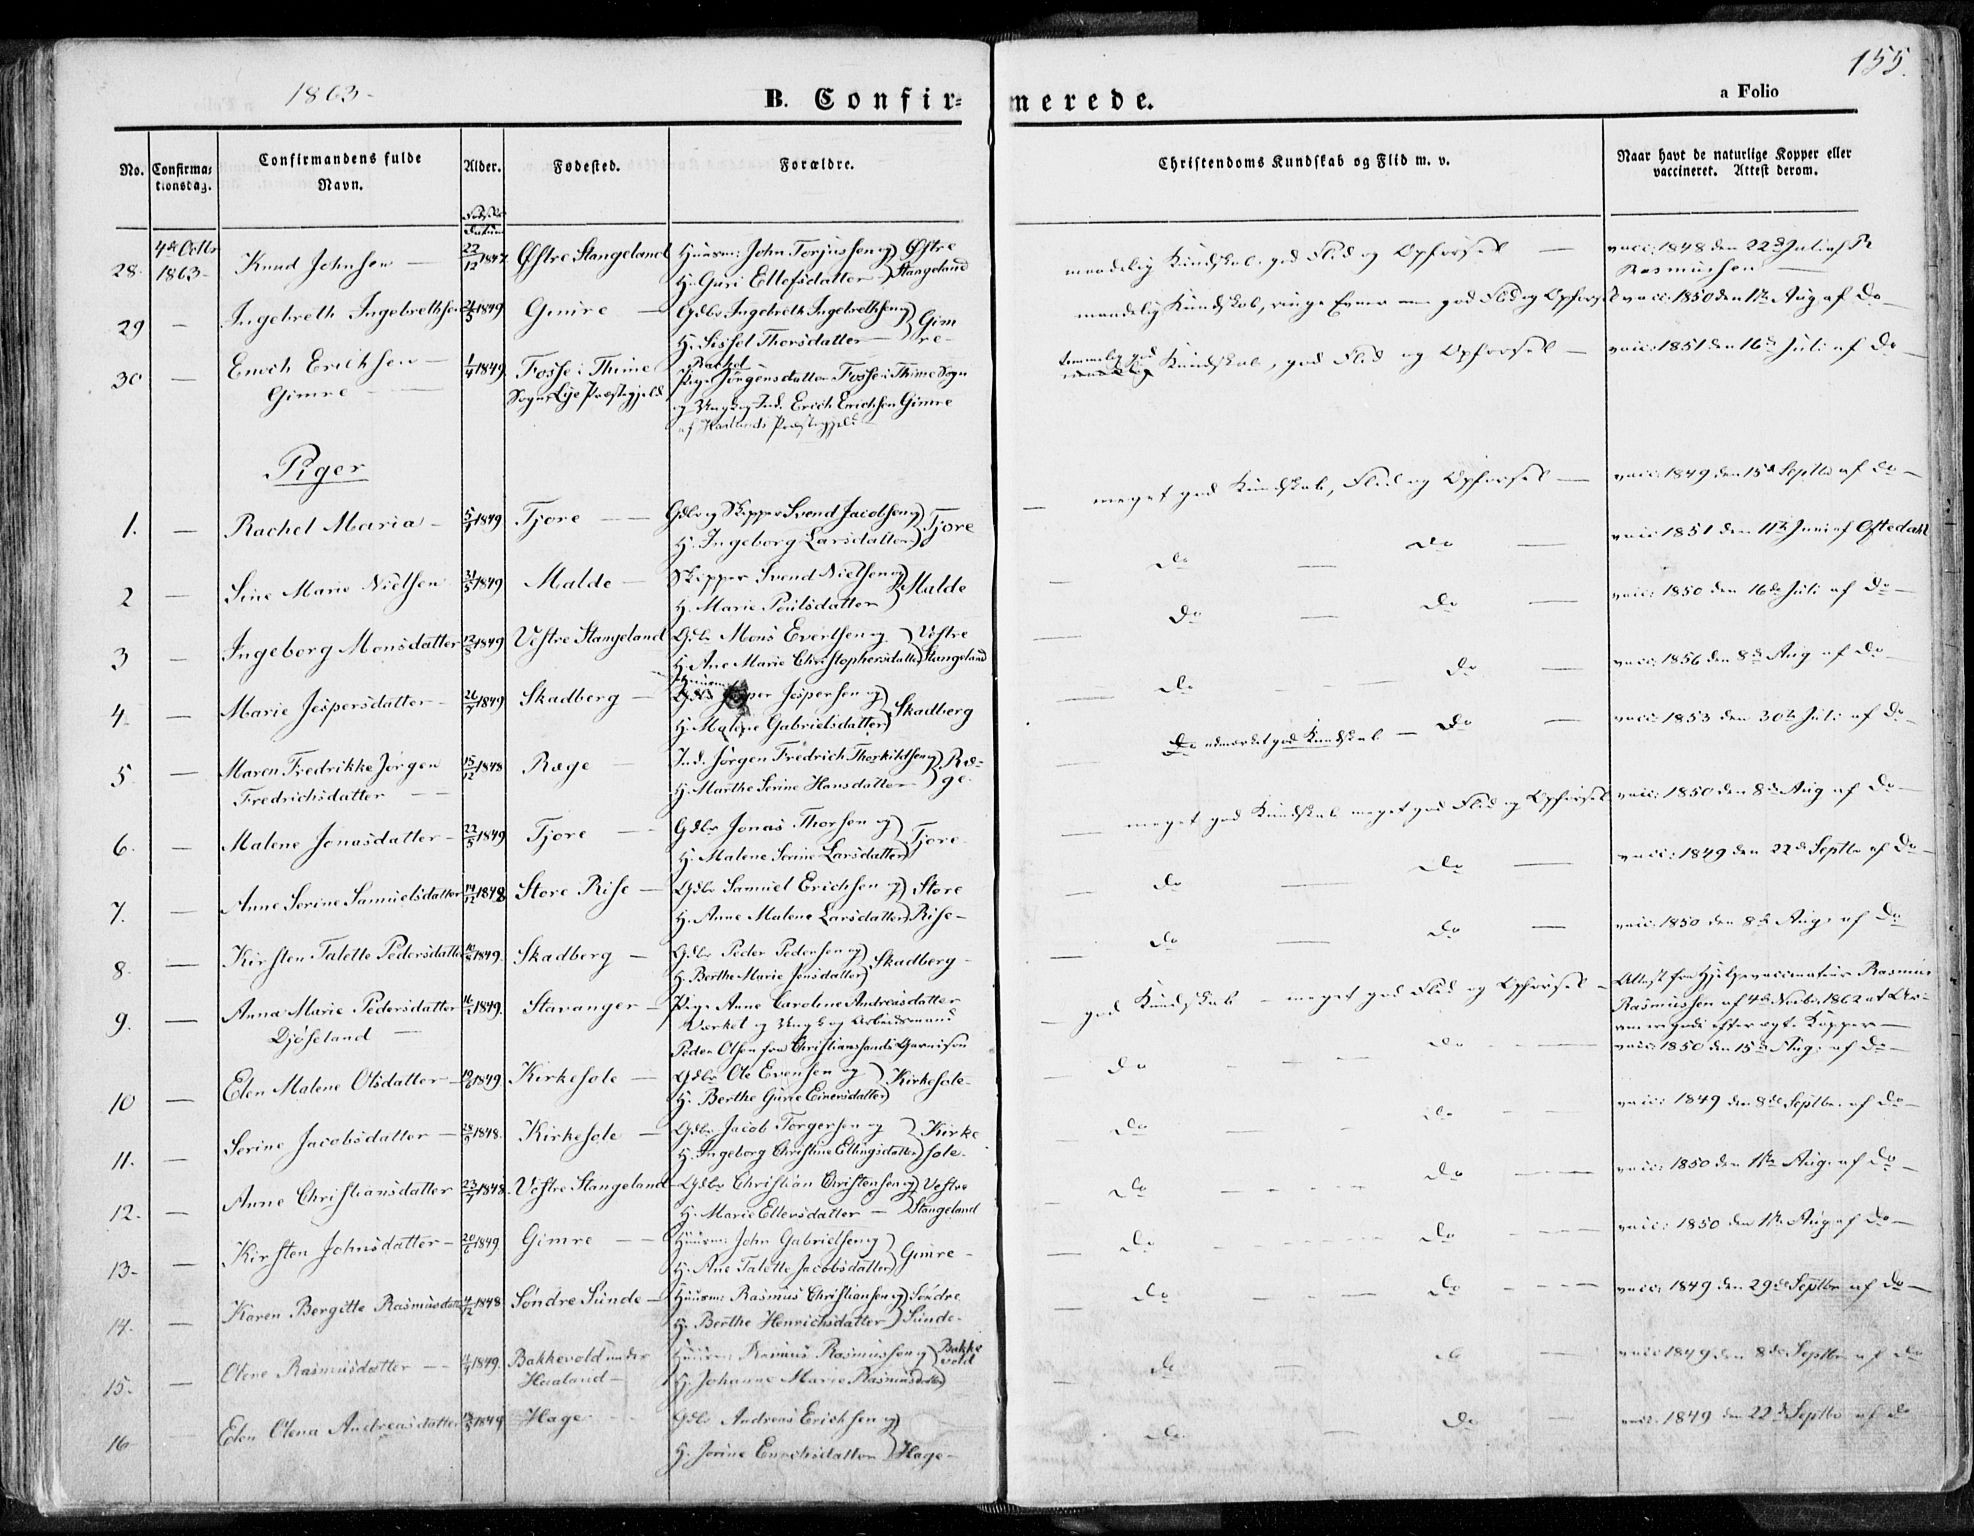 1863-
155.
B. Confir=
merede.
a Folio
No.
Confirma=
tionsdag.
Confirmandens fulde
Navn.
Alder.
Fødested.
Forældre.
Christendoms Kundskab og Flid m. v.
Naar havt de naturlige Kopper eller
vaccineret. Attest derom.
28. 4de Octbr 1863- Knud Johnsen — 22/12 1847. Østre Stangeland
Huusm: John Torjussen og Østre
H. Guri Ellefsdatter Stangeland
maadelig Kundskab, god Flid og Opførsel —
vacc: 1848 den 22de Juli af R
Rasmussen —
29 — Ingebreth Ingebrethsen 1849 Gimre —
Gdbr Ingebreth Ingebrethsen og Gim
H. Sissel Thorsdatter — re-
maadelig Kundskab, ringe Evner men god Flid og Opførsel
vacc: 1850 den 1ste Aug af Do —
30 — Enoch Erichsen — 1/4 1849. Fosse i Thime
Gimre — Sogn, Lye Præstegjeld
Rachel
Pige Jörgensdatter Fosse i Thime Sogn
og Ungk og Ind. Erich Erichsen Gimre
af Haalands Præstegjeld
temmelig god
Kundskab, god Flid og Opførsel —
vacc: 1851 den 16de Juli af Do —
Piger
1. — Rachel Maria — 1849 Tjore —
Gdbr og Skipper Svend Jacobsen og Tjore
H. Ingeborg Larsdatter
meget god Kundskab, Flid og Opførsel —
vacc: 1849 den 15de Septbr af Do —
2 — Sine Marie Nielsen 1849 Malde —
Skipper Svend Nielsen og Malde
H. Marie Poulsdatter
Do — Do —
vacc: 1851 den 11te Juni af Oftedahl
3 — Ingeborg Monsdatter 1849 Vestre Stangeland
Gdbr Mons Evertsen og Vestre
H. Ane Marie Christophersdatter Stangeland
Do — Do —
vacc: 1850 den 16de Juli af Do —
4. — Marie Jespersdatter — 26/7 1849 Skadberg —
Huusm:
Jesper Jespersen og
H. Malene Gabrielsdatter Skadberg
Do — Do —
vacc: 1856 den 8de Aug af Do —
5 — Maren Fredrikke Jörgen 15/12 1848 Ræge —
Fredrichsdatter —
Ind. Jörgen Fredrich Thorkildsen og Ræ-
H. Marthe Serine Hansdatter ge.
Do udmærket god Kundskab — Do —
vacc: 1853 den 30te Juli af Do —
6. — Malene Jonasdatter — 22/5 1849 Tjore —
Gdbr Jonas Thorsen og Tjore
H. Malene Serine Larsdatter
meget god Kundskab meget god Flid og Opførsel
vacc: 1850 den 8de Aug af Do —
7. — Anne Serine Samuelsdatter 14/12 1848 Store Rise —
Gdbr Samuel Erichsen og Store
H. Anne Malene Larsdatter Rise —
Do — Do —
vacc: 1849 den 22de Septbr af Do —
8. — Kirsten Talette Pedersdatter 1849. Skadberg —
Gdbr Peder Pedersen og Skadberg -
H. Berthe Marie Jonsdatter
Do — Do —
vacc: 1850 den 8de Aug. af Do
9. — Anna Marie Pedersdatter 1849. Stavanger —
Djøseland —
Pige Anne Caroline Andreasdatter
Værket og Ungk og Arbeidsmand
Peder Olsen fra Christianssands Garnison
god Kundskab — meget god Flid og Opførsel —
Attest fra Hjelpevaccinateur Rasmus
Rasmussen af 4de Novbr. 1862 at Ar-
efter ægte Kopper —
10 — Elen Malene Olsdatter — 1849. Kirkesole —
Gdbr Ole Evensen og Kirkesole-
H. Berthe Gurie Einersdatter
Do — Do —
vacc: 1850 den 15de Aug. af Do —
11. — Serine Jacobsdatter — 1848. Kirkesole —
Gdbr Jacob Torgersen og Kirke
H. Ingeborg Christine Ellingsdatter sole.
Do — Do —
vacc: 1849 den 8de Septbr. af Do —
12. — Anne Christiansdatter 1848. Vestre Stangeland
Gdbr Christian Christensen og Vestre
H. Marie Ellersdatter — Stangeland
Do — Do —
vacc: 1850 den 1ste Aug. af Do —
13- — Kirsten Johnsdatter — 20/6 1849. Gimre —
Huusm: John Gabrielsen og Gimre —
H. Ane Talette Jacobsdatter
Do — Do —
vacc: 1850 den 1ste Aug af Do —
14. — Karen Bergitte Rasmusdatter 4/12 1848 Søndre Sunde —
Huusm: Rasmus Christiansen og Søndre
H. Berthe Henrichsdatter Sunde.
Do — Do —
vacc: 1849 den 29de Septbr af Do —
15. — Olene Rasmusdatter — 1849. Bakkevold under
Haaland —
Huusm: Rasmus Rasmussen og Bakke
vold
H. Johanne Marie Rasmusdatter
Do — Do —
vacc: 1849 den 8de Septbr af Do
16 — Elen Olena Andreasdatter 1849 Hage —
Gdbr Andreas Erichsen og
H. Serine Enochsdatter Hage —
Do. — Do —
vacc. 1849 den 22de Septbr af Do